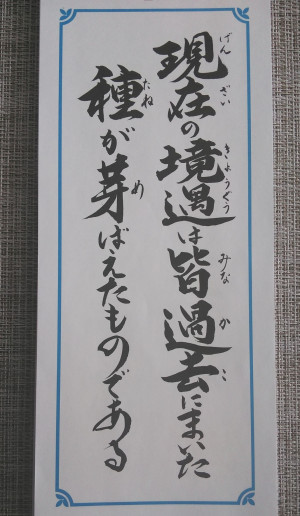 現在の境遇は皆過去にまいた
種が芽ばえたものである